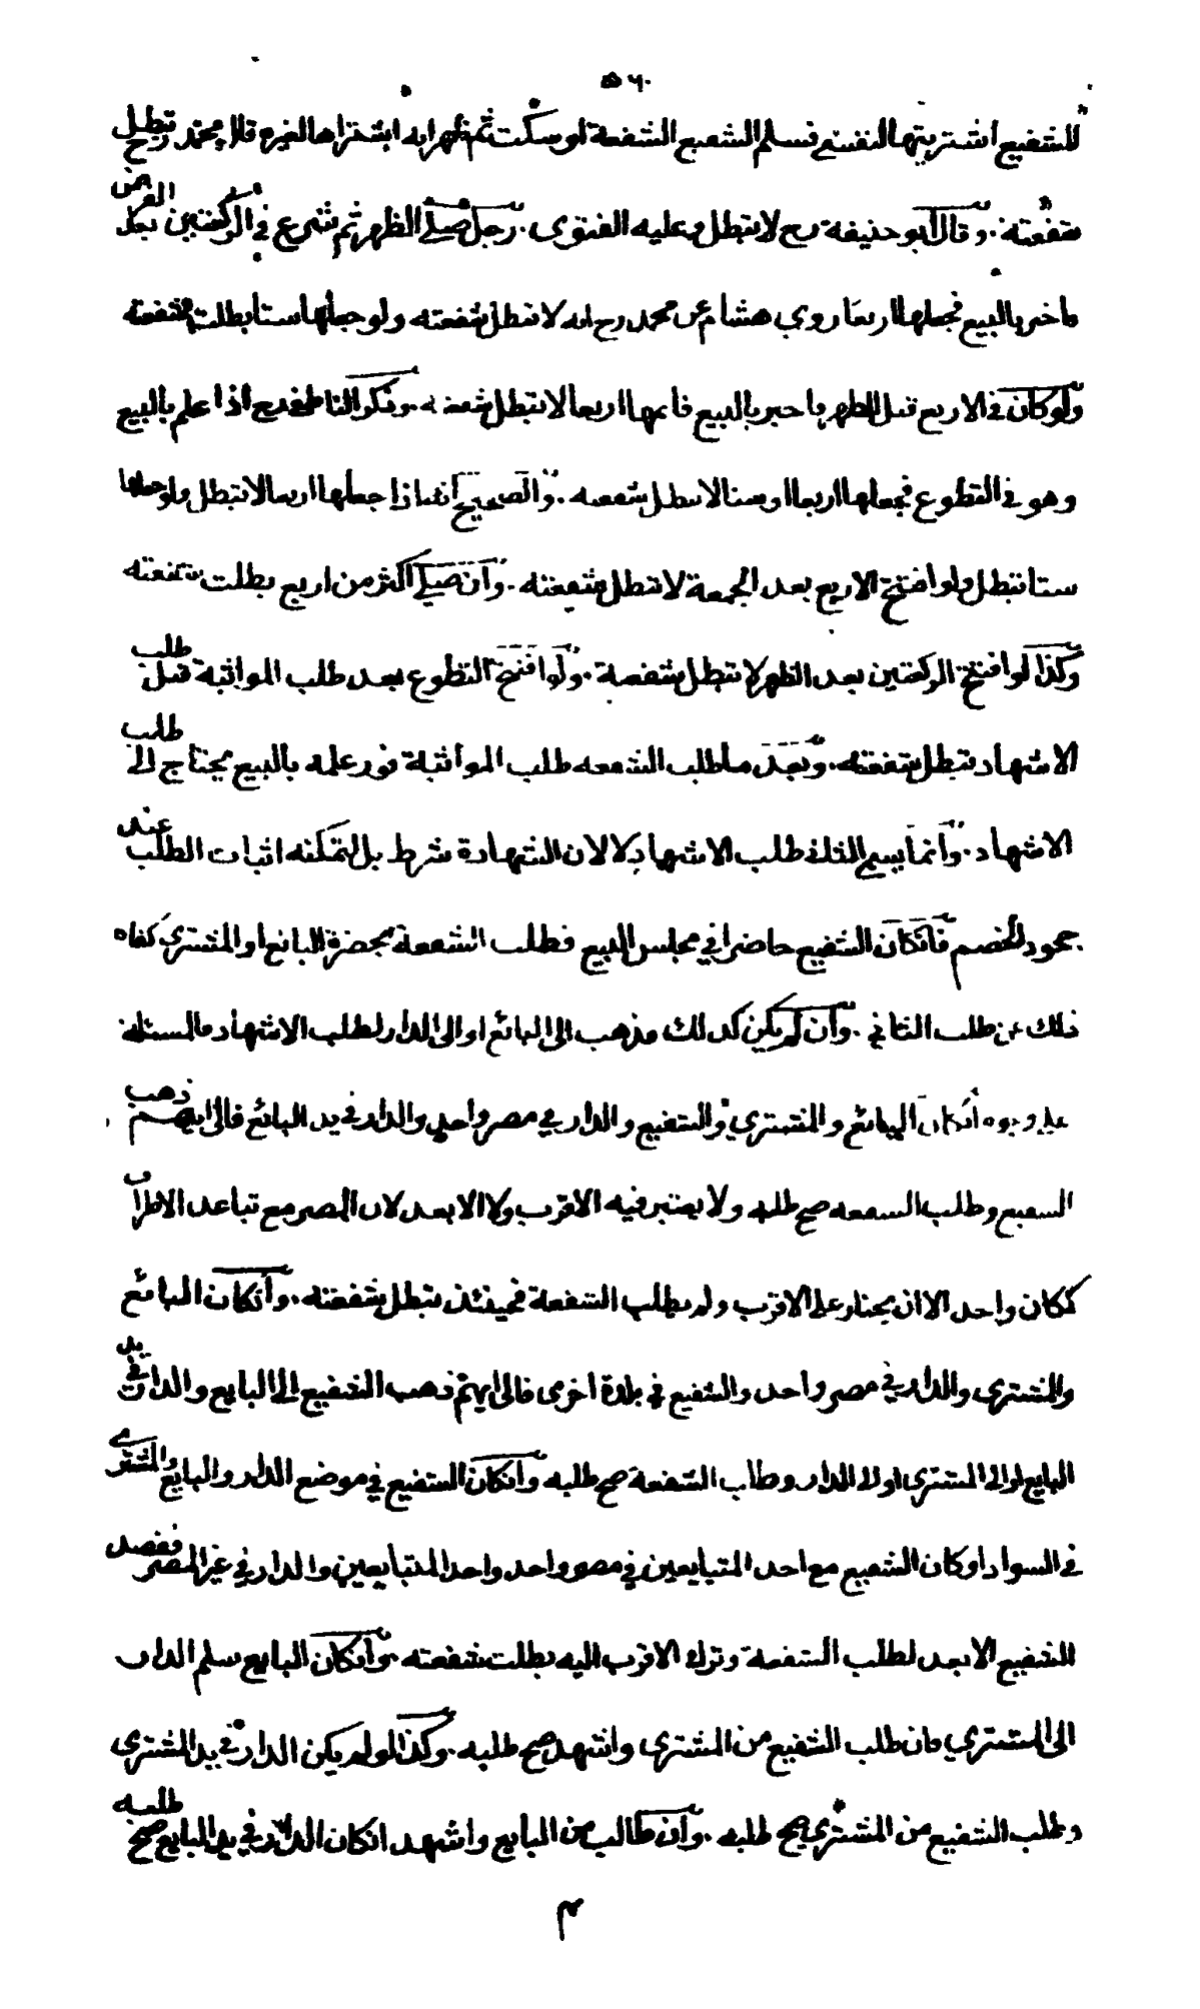 ٥٦٠
للشفيع اشتريتها لنفسى فسلم الشفيع الشفعة او سكت ثم ظهر انه اشتراها لغيره قال محمد رح تبطل
شفعته . وقال ابو حنيفة رح لا تبطل وعليه الفتوى . رجل صلى الظهر ثم شرع في الركعتين بعد الفرض
فاخبر بالبيع فجعلها اربعا روي هشام عن محمد رح انه لا تبطل شفعته ولو جعلها ستا بطلت شفعته
ولو كان في الاربع قبل الظهر فاخبر بالبيع فاتمها اربعا لا تبطل شفعته . وذكر الناطفي رح اذا علم بالبيع
وهو في التطوع فجعلها اربعا او ستا لا تبطل شفعته . والصحيح انه اذا جعلها اربعا لا تبطل ولو جعلها
ستا تبطل ولو افتتح الاربع بعد الجمعة لا تبطل شفعته . وان صلى اكثر من اربع بطلت شفعته
وكذا لو افتتح الركعتين بعد الظهر لا تبطل شفعة . ولو افتتح التطوع بعد طلب المواثبة قبل طلب
الاشهاد تبطل شفعته . وبعد ما طلب الشفعه طلب المواثبة فور علمه بالبيع يحتاج الى طلب
الاشهاد . وانما يسمى الثانى طلب الاشهاد لا لان الشهادة شرط بل لتمكنه اثبات الطلب عند
جحود الخصم فان كان الشفيع حاضرا في مجلس البيع فطلب الشفعة بحضرة البائع او المشتري كفاه
ذلك عن طلب الثاني . وان لم يكن كذلك فذهب الى البائع او الى الدار لطلب الاشهاد فالمسئلة
على وجوه ان كان البائع والمشتري والشفيع والدار في مصر واحد والدار في يد البائع فالى ايهم ذهب
الشفيع وطلب الشفعه صح طلبه ولا يعتبر فيه الاقرب ولا الابعد لان المصر مع تباعد الاطراف
كمكان واحد الا ان يجتاز على الاقرب ولم يطلب الشفعة فحينئذ تبطل شفعته . وان كان البائع
والمشترى والدار في مصر واحد والشفيع في بلدة اخرى فالى ايهم ذهب الشفيع الى البايع والدار في يد
البايع او الى المشترى او الى الدار وطلب الشفعة صح طلبه وان كان الشفيع في موضع الدار والبايع والمشترى
في السواد او كان الشفيع مع احد المتبايعين في مصر واحد واحد المتبايعين والدار في غير المصر فقصد
الشفيع الابعد لطلب الشفعة وترك الاقرب اليه بطلت شفعته . وان كان البايع سلم الدار
الى المشتري فان طلب الشفيع من المشترى واشهد صح طلبه . وكذا لو لم يكن الدار في يد المشترى
وطلب الشفيع من المشتري صح طلبه . وان طالب من البايع واشهد ان كان الدار في يد البايع صح
م